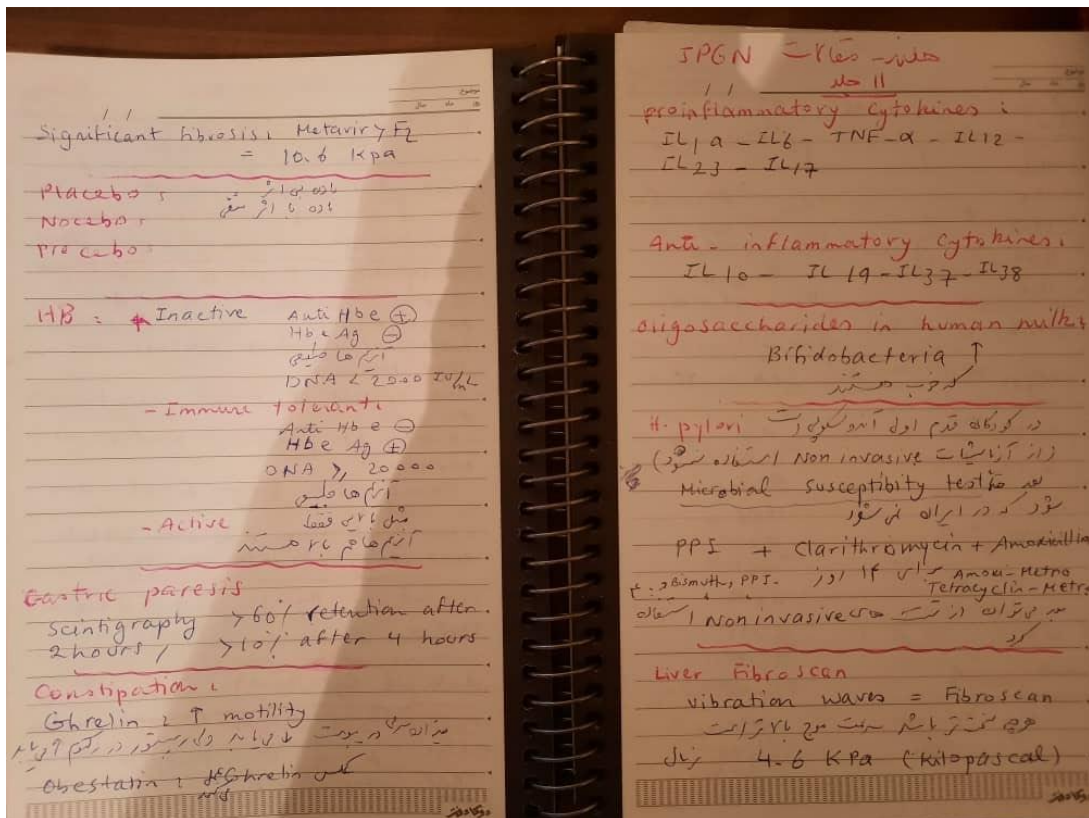 Significant fibrosis: Metavir > F2
= 10.6 Kpa
Placebo: ماده بی اثر
Nocebo: ماده با اثر منفی
Placebo
HB: Inactive Anti Hbe ⊕
Hbe Ag ⊖
آنزیم ها طبیعی
DNA < 2000 IU/mL
- Immune tolerant:
Anti Hbe ⊖
Hbe Ag ⊕
DNA ≥ 20000
آنزیم ها طبیعی
- Active مثل بالایی فقط
آنزیم ها هم بالا هستند
Gastric paresis
Scintigraphy >60% retention after
2 hours / >10% after 4 hours
Constipation:
Ghrelin: ↑ motility
Obestatin: Ghrelin عکس
JPGN مقالات
11 جلد
proinflammatory cytokines:
IL1a - IL6 - TNF-α - IL12 -
IL23 - IL17
Anti-inflammatory cytokines:
IL10 - IL19 - IL37 - IL38
oligosaccharides in human milk:
Bifidobacteria ↑
که خوب هستند
H. pylori در کودکان قدم اول آندوسکوپی است
(از آزمایشات Non invasive استفاده نشود)
بعد حتما Microbial susceptibity test
شود که در ایران نمی شود
PPI + Clarithromycin + Amoxicillin
برای ۱۴ روز Amoxi-Metro
Bismuth, PPI Tetracyclin-Metro
بعد می توان از تست های Non invasive استفاده
کرد
Liver Fibroscan
vibration waves = Fibroscan
هرچی سخت تر باشد سرعت موج بالاتر است
نرمال 4.6 KPa (kilopascal)